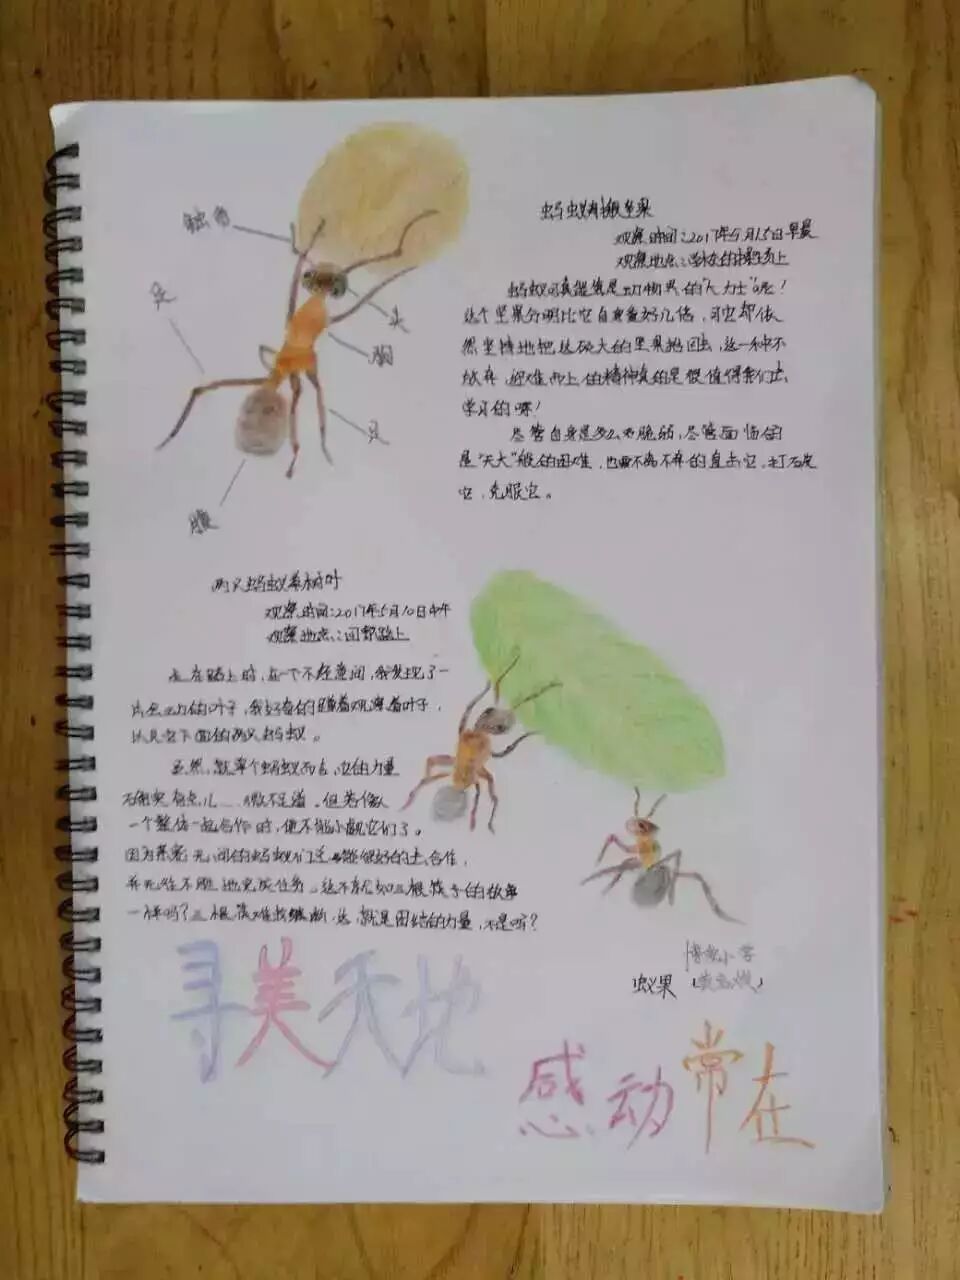 触角
足
头
胸
足
腹
蚂蚁搬坚果
观察时间:2017年5月15日早晨
观察地点:学校的操场上
蚂蚁可真能算是动物界的“大力士”呢!
这个坚果分明比它自身重好几倍,可它却依
然坚持地把这硕大的坚果拖回去,这一种不
放弃,迎难而上的精神真的是很值得我们去
学习的啊!
尽管自身是多么的脆弱,尽管面临的
是“天大”般的困难,也要不离不弃的直击它,打
它,克服它。
两只蚂蚁举树叶
观察时间:2017年5月10日中午
观察地点:回家路上
走在路上时,在一个不经意间,我发现了一
片会动的叶子,我好奇的蹲着观察着叶子,
以及它下面的两只蚂蚁。
虽然,就单个蚂蚁而言,它的力量
确实有点儿……微不足道。但若像
一个整体一起合作时,便不能小觑它们了。
因为亲密无间的蚂蚁们总能很好的去合作,
并无往不胜地完成任务。这不就如三根筷子的故事
一样吗?三根筷难被折断,这就是团结的力量,不是吗?
小学
蚁果
寻美天地
感动常在